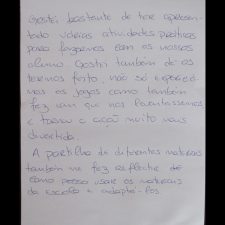 Gostei bastante de ter apresen-
tado várias atividades práticas
para fazermos com os nossos
alunos. Gostei também de os
termos feito, não só experi
mos os jogos como também
fez com que nos levantássemos
e tornou a ação muito mais
divertida.
A partilha de diferentes materiais
também me fez reflectir de
como posso usar os materiais
da escola e adaptá-los.